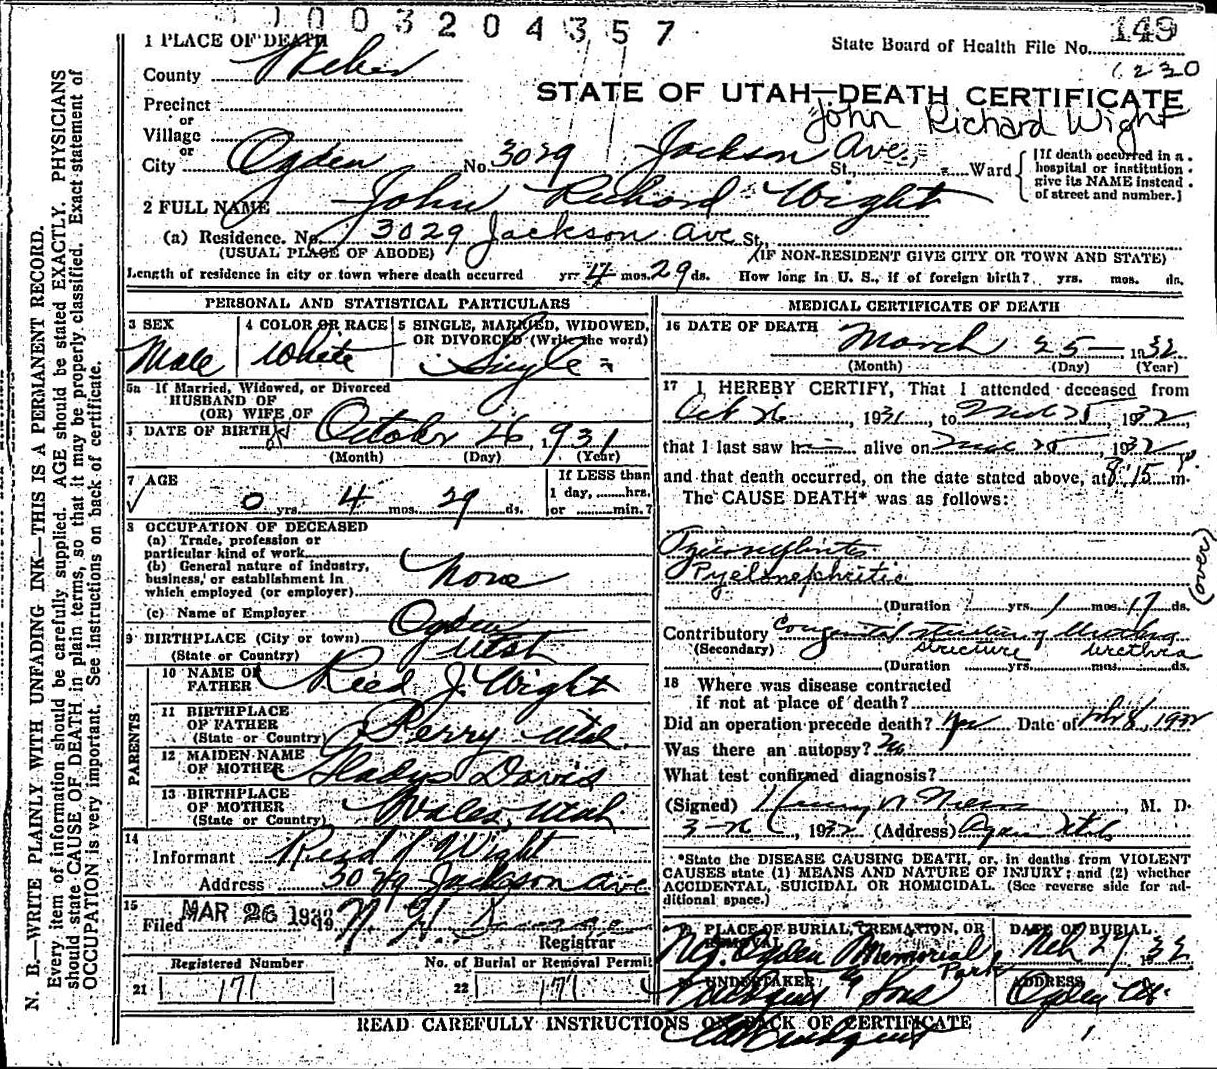 0003204357
149
State Board of Health File No.
230
1 PLACE OF DEATH
County Weber
STATE OF UTAH—DEATH CERTIFICATE
John Richard Wight
Precinct
or
Village
or
City Ogden No. 3029 Jackson Ave. St., Ward
[If death occurred in a hospital or institution give its NAME instead of street and number.]
2 FULL NAME John Richard Wight
(a) Residence. No. 3029 Jackson Ave St.,
(USUAL PLACE OF ABODE) (IF NON-RESIDENT GIVE CITY OR TOWN AND STATE)
Length of residence in city or town where death occurred yrs. 4 mos. 29 ds. How long in U. S., if of foreign birth? yrs. mos. ds.
PERSONAL AND STATISTICAL PARTICULARS
3 SEX
Male
4 COLOR OR RACE
White
5 SINGLE, MARRIED, WIDOWED, OR DIVORCED (Write the word)
Single
5a If Married, Widowed, or Divorced
HUSBAND OF
(OR) WIFE OF
DATE OF BIRTH October 26, 1931
(Month) (Day) (Year)
7 AGE
0 yrs. 4 mos. 29 ds.
If LESS than
1 day, hrs.
or min.?
8 OCCUPATION OF DECEASED
(a) Trade, profession or
particular kind of work
(b) General nature of industry,
business, or establishment in
which employed (or employer)
None
(c) Name of Employer
9 BIRTHPLACE (City or town) Ogden
(State or Country) Utah
PARENTS
10 NAME OF
FATHER Reed J. Wight
11 BIRTHPLACE
OF FATHER
(State or Country) Perry Utah
12 MAIDEN NAME
OF MOTHER Gladys Davis
13 BIRTHPLACE
OF MOTHER
(State or Country) Wales, Utah
14
Informant Reed J Wight
Address 3029 Jackson Ave
15
Filed MAR 26 1932
Registrar
Registered Number
21 171
No. of Burial or Removal Permit
22 171
MEDICAL CERTIFICATE OF DEATH
16 DATE OF DEATH March 25 1932
(Month) (Day) (Year)
17 I HEREBY CERTIFY, That I attended deceased from
Oct 26, 1931 to Mch 25, 1932
that I last saw h alive on Mch 25, 1932
and that death occurred, on the date stated above, at 8:15 p. m.
The CAUSE DEATH* was as follows:
Pyelonephritis
(over)
(Duration yrs. 1 mos. 17 ds.
Contributory Congenital stricture of
(Secondary) stricture Urethra
(Duration yrs. mos. ds.
18 Where was disease contracted
if not at place of death?
Did an operation precede death? Yes Date of 8, 1932
Was there an autopsy? No
What test confirmed diagnosis?
(Signed) M. D.
3-26, 1932 (Address) Ogden Utah
*State the DISEASE CAUSING DEATH, or, in deaths from VIOLENT
CAUSES state (1) MEANS AND NATURE OF INJURY; and (2) whether
ACCIDENTAL, SUICIDAL OR HOMICIDAL. (See reverse side for additional space.)
19 PLACE OF BURIAL, CREMATION, OR
REMOVAL
Ogden Memorial
Park
DATE OF BURIAL
27 1932
UNDERTAKER
& Sons
ADDRESS
Ogden
READ CAREFULLY INSTRUCTIONS ON BACK OF CERTIFICATE
N. B.—WRITE PLAINLY WITH UNFADING INK—THIS IS A PERMANENT RECORD.
Every item of information should be carefully supplied. AGE should be stated EXACTLY. PHYSICIANS
should state CAUSE OF DEATH in plain terms, so that it may be properly classified. Exact statement of
OCCUPATION is very important. See instructions on back of certificate.